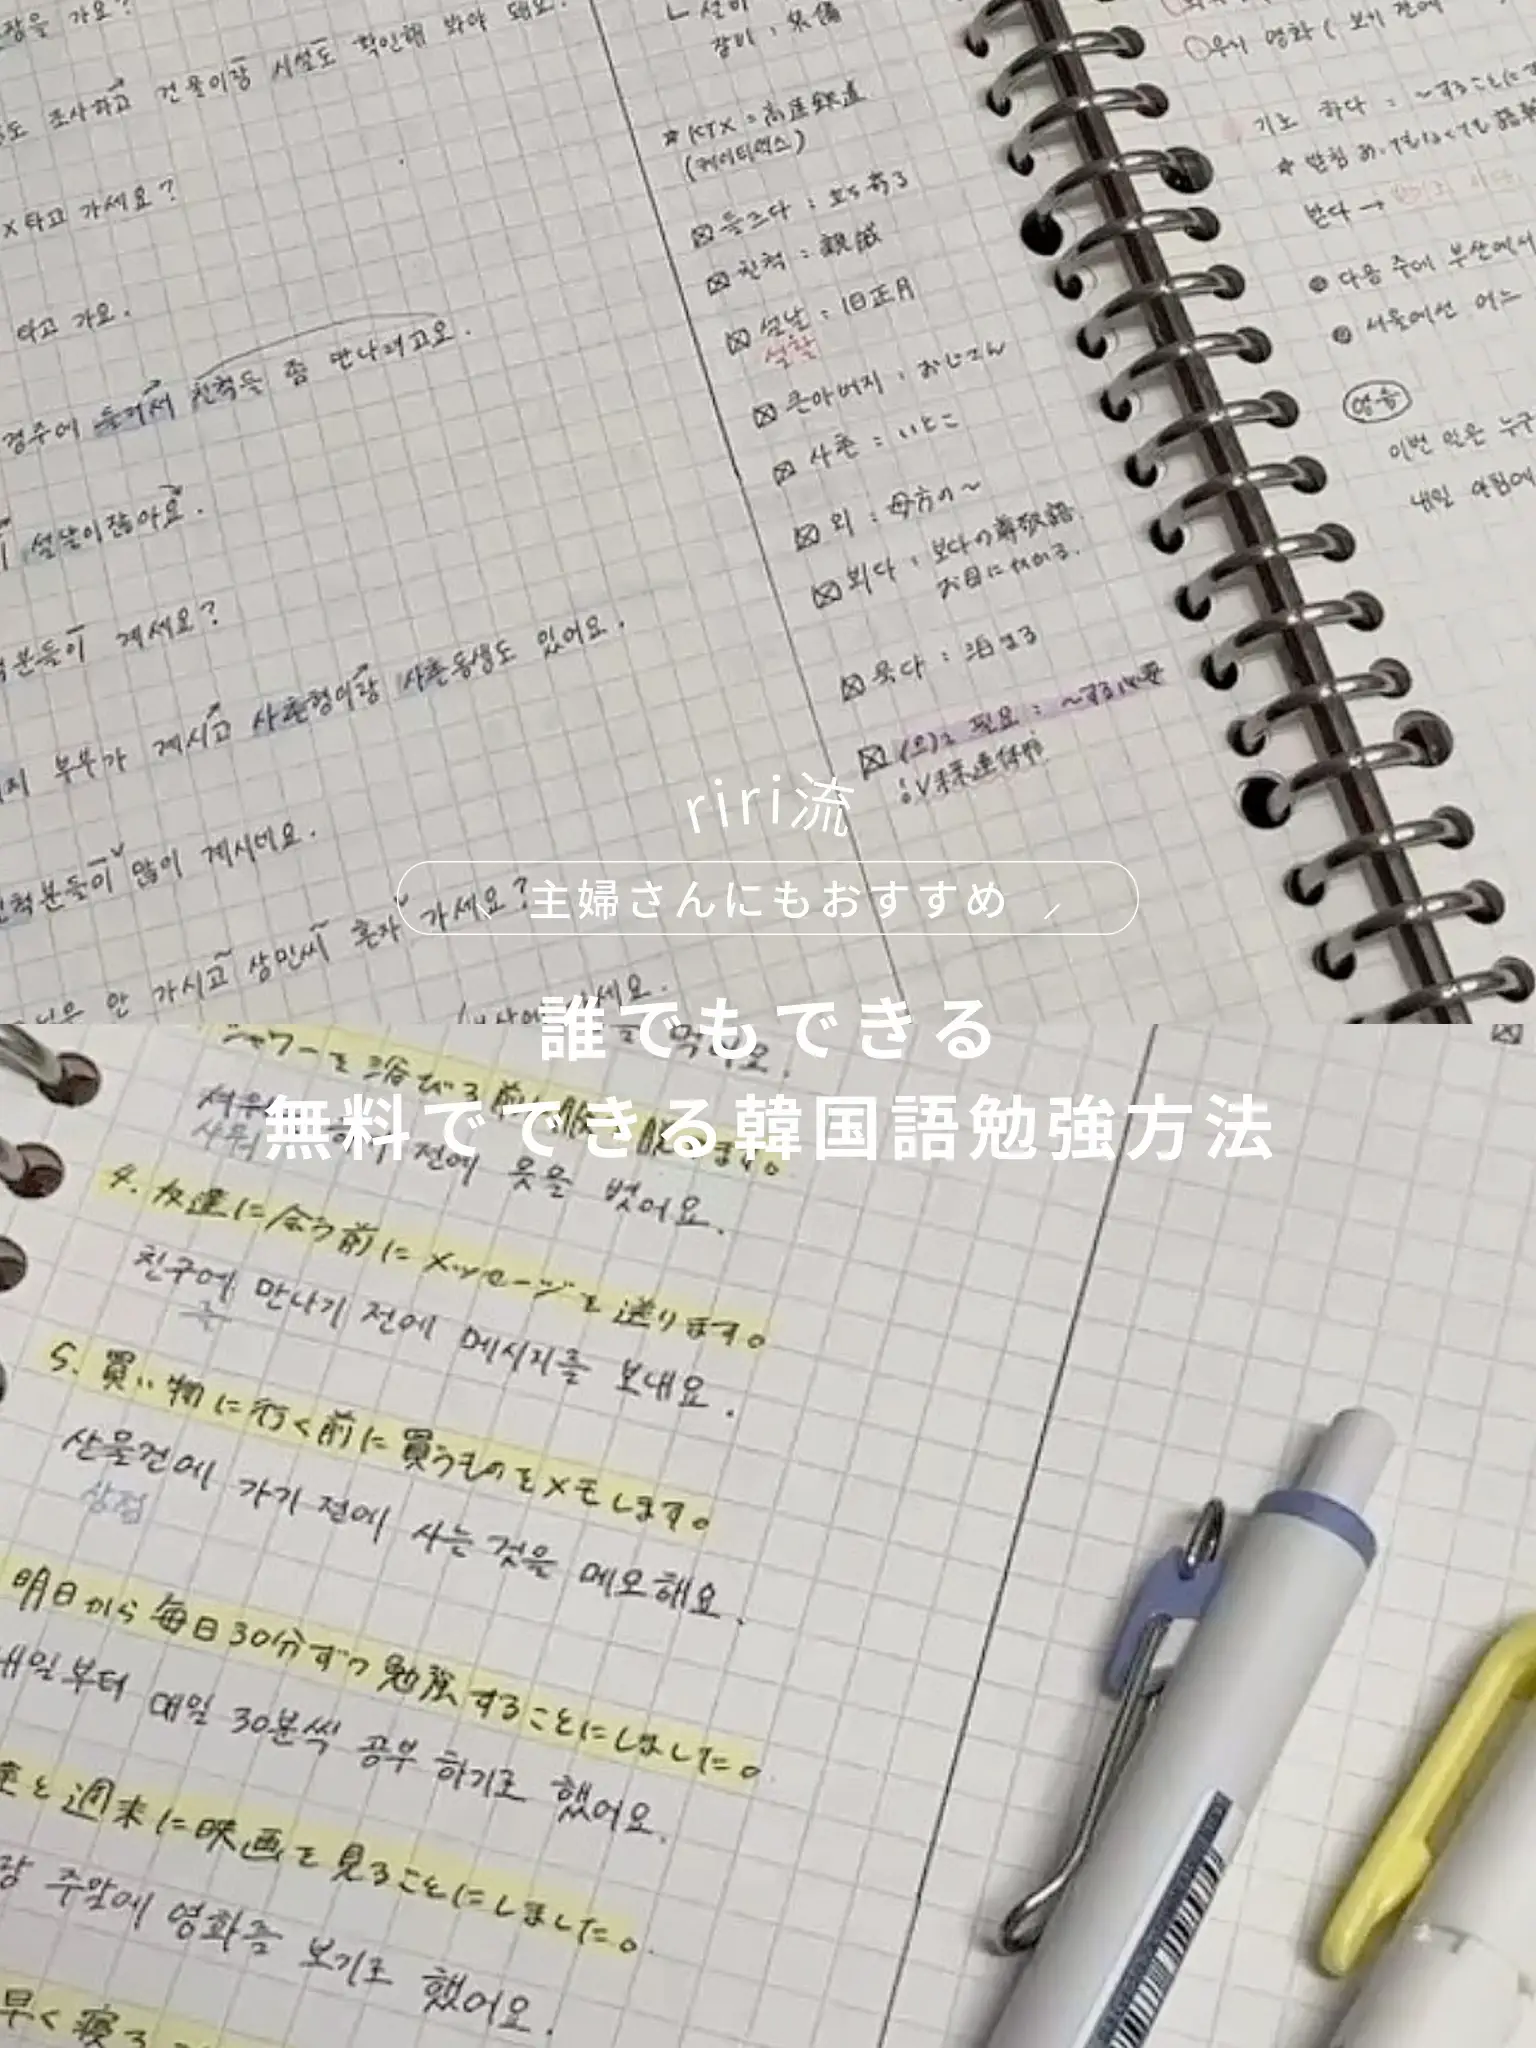 장을 가요?
도 조사하고 건물이랑 시설도 확인해 봐야 돼요.
타고 가세요?
타고 가요.
경주에 들려서 친척들 좀 만나려고요.
설날이잖아요.
분들이 계세요?
부부가 계시고 사촌형이랑 사촌동생도 있어요.
친척분들이 많이 계시네요.
안 가시고 상민씨 혼자 가세요?
장비 : 装備
* KTX = 高速鉄道
(케이티엑스)
들르다 : 立ち寄る
친척 : 親戚
설날 : 旧正月
설랄
큰아버지 : おじさん
사촌 : いとこ
외 : 母方の〜
뵈다 : 보다の尊敬語.
お目にかかる.
묵다 : 泊まる
(으)ㄹ 필요 : 〜する必要
영화 ( 보기 전에
기로 하다 : 〜することに
받다 →
다음 주에 부산에서
서울에선 어느
이번 일은 누구
내일 아침에
riri流
主婦さんにもおすすめ
誰でもできる
無料でできる韓国語勉強方法
シャワーを浴びる前に服
전에 옷을 벗어요.
4. 友達に会う前にメッセージを送ります。
친구에 만나기 전에 메시지를 보내요.
를
5. 買い物に行く前に買うものをメモします。
산물건에 가기 전에 사는 것을 메모해요.
상점
明日から毎日30分ずつ勉強することにしました。
내일부터 매일 30분씩 공부 하기로 했어요.
と週末に映画を見ることにしました。
랑 주말에 영화를 보기로 했어요.
早く寝る